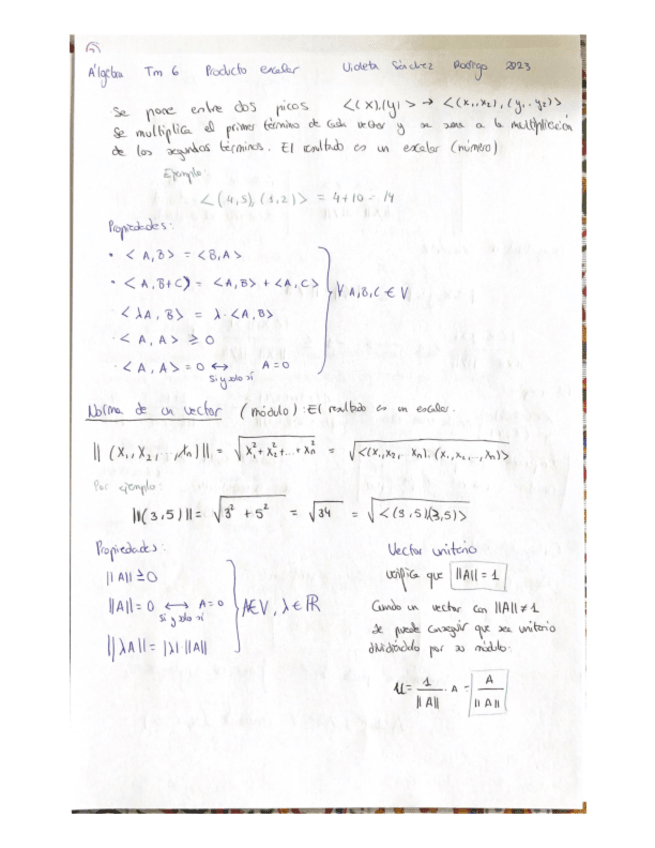 Álgebra Tm 6 Producto escalar Violeta Sánchez Rodrigo 2023
Se pone entre dos picos <(x),(y)> → <(x₁,x₂),(y₁,y₂)>
Se multiplica el primer término de cada vector y se suma a la multiplicación
de los segundos términos. El resultado es un escalar (número)
Ejemplo:
<(4,5),(1,2)> = 4+10 = 14
Propiedades:
• <A,B> = <B,A>
• <A,B+C> = <A,B> + <A,C>
<λA, B> = λ·<A,B>
• <A, A> ≥ 0
• <A, A> = 0 ↔ A=0
si y solo si
∀ A,B,C ∈ V
Norma de un vector (módulo): El resultado es un escalar.
|| (x₁,x₂,...,xₙ) || = √(x₁²+x₂²+...+xₙ²) = √<(x₁,x₂,...xₙ).(x₁,x₂,...,xₙ)>
Por ejemplo:
||(3,5)|| = √(3² + 5²) = √34 = √<(3,5)(3,5)>
Propiedades:
||A|| ≥ 0
||A|| = 0 ↔ A=0
si y solo si
||λA|| = |λ| ||A||
A∈V, λ∈ℝ
Vector unitario
verifica que ||A|| = 1
Cuando un vector con ||A|| ≠ 1
se puede conseguir que sea unitario
dividiéndolo por su módulo:
u = 1/||A|| · A = A/||A||